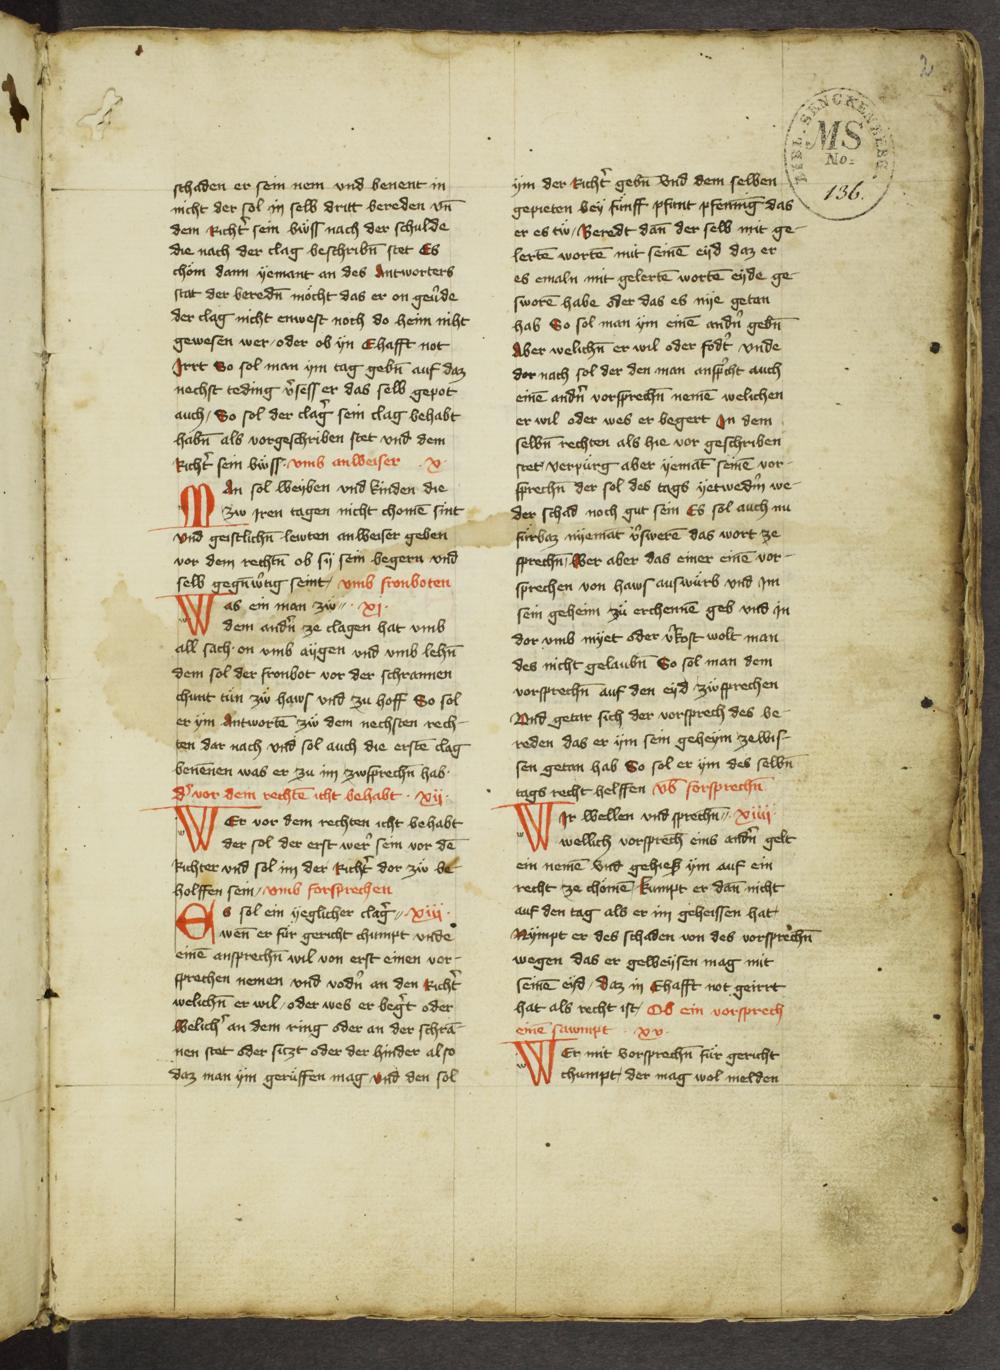 2
BIBL. SENCKENBERG.
MS
No.
136.
schaden er sein nem vnd benent in
nicht der sol in selb dritt bereden vn̄
dem Richt̄ sein bwss nach der schulde
die nach der clag beschribn̄ stet Es
chöm dann yemant an des Antworters
stat der beredn̄ möcht das er on geude
der clag nicht enwest noch do heim niht
gewesen wer / oder ob yn Ehafft not
Irrt So sol man ym tag gebn̄ auf daz
nechst teding vsess er das selb gepot
auch / So sol der claḡ sein clag behabt
habn̄ als vorgeschriben stet vnd dem
Richt̄ sein bwss · vmb anweiser · x ·
MAn sol weyben vnd kinden die
zw iren tagen nicht chomē sint
vnd geistlichn̄ lewten anweiser geben
vor dem rechtn̄ ob sy sein begern vnd
selb gegnw̄tig seint / vmb fronboten
Was ein man zw · xi ·
dem andn̄ ze clagen hat vmb
all sach · on vmb aygen vnd vmb lehn̄
dem sol der fronbot vor der schrannen
chunt tün zw haws vnd zu hoff So sol
er ym Antwortē zw dem nechsten rech-
ten dar nach vnd sol auch die erstē clag
benēnen was er zu im zwsprechn̄ hab ·
Dʳ vor dem rechtē icht behabt · xij ·
WEr vor dem rechten icht behabt
der sol der erst wer̄ sein vor dē
Richter vnd sol im der Richt̄ dor zw be
holffen sein / vmb forsprechen
Es sol ein yeglicher claḡ · xiij ·
wen̄ er für gericht chumpt vnde
einē ansprechn̄ wil von erst einen vor-
sprechen nemen vnd vodn̄ an den Richt̄
welichn̄ er wil / oder wes er beḡt oder
Welich̄ an dem ring oder an der schra-
nen stet oder siczt oder der hinder also
daz man ym gerüffen mag vnd den sol
ym der Richt̄ gebn̄ Vnd dem selben
gepieten bey fünff pfunt pfenning das
er es tw / Beredt dan̄ der selb mit ge-
lertē wortē mit seinē eyd daz er
es emaln mit gelertē wortē eyde ge-
sworē habe der das es nye getan
hab So sol man ym einē andn̄ gebn̄
Aber welichn̄ er wil oder fodt̄ vnde
dor nach sol der den man ansp̄cht auch
einē andn̄ vorsprechn̄ nemē welichen
er wil oder wes er begert In dem
selbn̄ rechten als hie vor geschriben
stet Verpürg aber yemāt seinē vor-
sprechn̄ der sol des tags yetwedm̄ we-
der schad noch gut sein Es sol auch nu
fürbaz nyemāt v̄swerē das wort ze
sprechn̄ Wer aber das einer einē vor-
sprechen von haws auswürb vnd Im
sein geheim zü erchennē geb vnd In
dor vmb myet oder v̄kost wolt man
des nicht gelaubn̄ So sol man dem
vorsprechn̄ auf den eyd zwsprechen
Vnd getar sich der vorsprech des be-
reden das er ym sein geheym zewis-
sen getan hab So sol er ym des selbn̄
tags recht helffen vb̄ forsprechn̄
WIr wellen vnd sprechn̄ · xiiij ·
wellich vorsprech eins andn̄ gelt
ein nemē Vnd gehieß ym auf ein
recht ze chömē kumpt er dan̄ nicht
auf den tag als er im geheissen hat
Nympt er des schaden von des vorsprechn̄
wegen das er geweysen mag mit
seinē eyd / daz in Ehafft not geirrt
hat als recht ist / Ob ein vorsprech
einē sawmpt · xv ·
WEr mit Vorsprechn̄ für gericht
chumpt / der mag wol melden